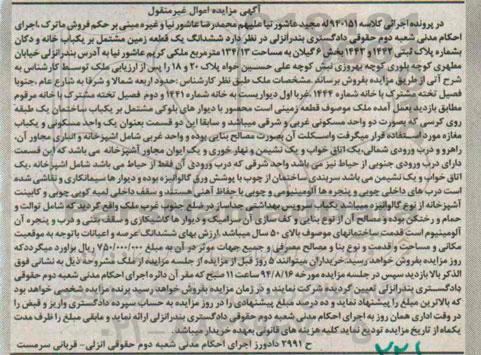 آگهی مزایده اموال غیرمنقول
در پرونده اجرائی کلاسه ۹۴۰۱۵۱ له مجید عاشورنیا علیهم محمدرضا عاشورنیا و غیره مبنی بر حکم فروش ماترک، اجرای
احکام مدنی شعبه دوم حقوقی دادگستری بندرانزلی در نظر دارد ششدانگ یک قطعه زمین مشتمل بر یکباب خانه و دکان
بشماره پلاک ثبتی ۱۴۴۲ و ۱۴۴۳ بخش ۶ گیلان به مساحت ۱۳۴/۱۳ مترمربع ملکی کریم عاشورنیا به آدرس بندرانزلی خیابان
مطهری کوچه بلوری کوچه بهروزی نبش کوچه علی حسین خواه پلاک ۲۰ و ۱۸ را پس از ارزیابی ملک توسط کارشناس به
شرح آتی از طریق مزایده بفروش برساند. مشخصات ملک طبق نظر کارشناس: حدود اربعه شمالا و شرقا به شارع عام، جنوبا
فصیل تخته مشترک با خانه شماره ۱۴۴۴، غربا اول دیواریست به خانه شماره ۱۴۴۱ و دوم فصیل تخته مشترک با خانه مرقوم
مطابق بازدید بعمل آمده ملک موصوف قطعه زمینی است محصور با دیوار های بلوکی مشتمل بر یکباب ساختمان یک طبقه
روی کرسی که بصورت دو واحد مسکونی غربی و شرقی میباشد و سابقا این دو قسمت بعنوان یک واحد مسکونی و یکباب
مغازه مورد استفاده قرار میگرفت واسکلت آن بصورت مصالح بنایی بوده و واحد غربی شامل آشپزخانه و انباری مجاور آن،
راهرو و درب ورودی شمالی، یک اتاق خواب و یک نشیمن و نهار خوری و یک ایوان مجاور آشپزخانه می باشد که این قسمت
دارای درب ورودی جنوبی از حیاط نیز می باشد واحد شرقی که درب ورودی آن فقط از حیاط می باشد شامل آشپزخانه، یک
اتاق خواب و یک نشیمن می باشد سربندی ساختمان از چوب با پوشش ورق گالوانیزه بوده و دیوار ها سیمانکاری و نقاشی شده
است درب های داخلی چوبی و پنجره ها آلومینیومی و چوبی با حفاظ آهنی هستند و سقف داخلی لمبه کوبی چوبی و کابینت
آشپزخانه از نوع گالوانیزه میباشد یکباب سرویس بهداشتی جداساز در ضلع جنوب غرب ملک واقع گردید که شامل توالت و
حمام و رختکن بوده و مصالح آن از نوع بنایی و کف سازی آن سرامیک و دیوار ها کاشیکاری و سقف بتنی و درب و پنجره آن
آلومینیوم است قدمت ساختمانهای موصوف بالای ۵۰ سال میباشد. ارزش بهای ششدانگ عرصه و اعیانات باتوجه به موقعیت
مکانی و مساحت و قدمت و نوع بنا و مصالح مصرفی و جمیع جهات موثر در آن به مبلغ ۷۵۰/۰۰۰/۰۰۰ ریال برآورد میگردد که
روز مزایده بفروش خواهد رسید. خریداران میتوانند ۵ روز قبل از مزایده از جلسه مزایده از ملک مشروحه ذیل به نشانی فوق
الذکر بالا بازدید سپس در جلسه مزایده مورخه ۹۴/۸/۱۶ ساعت ۱۱ صبح که مقر آن دائره اجرای احکام مدنی شعبه دوم حقوقی
دادگستری بندرانزلی تعیین گردیده شرکت نمایند و در زمان مزایده بفروش خواهد رسید برنده مزایده شخصی خواهد بود
که بالاترین مبلغ را پیشنهاد نماید و ده درصد مبلغ پیشنهادی را در روز مزایده به حساب سپرده دادگستری واریز و قبض را
در وقت اداری همان روز به اجرای احکام مدنی شعبه دوم حقوقی دادگستری بندرانزلی ارائه نماید و مابقی مبلغ را ظرف مدت
یکماه از تاریخ مزایده تودیع نماید کلیه هزینه های قانونی بعهده خریدار میباشد.
ح ۲۹۹۱ دادورز اجرای احکام مدنی شعبه دوم حقوقی انزلی - قربانی سرمست